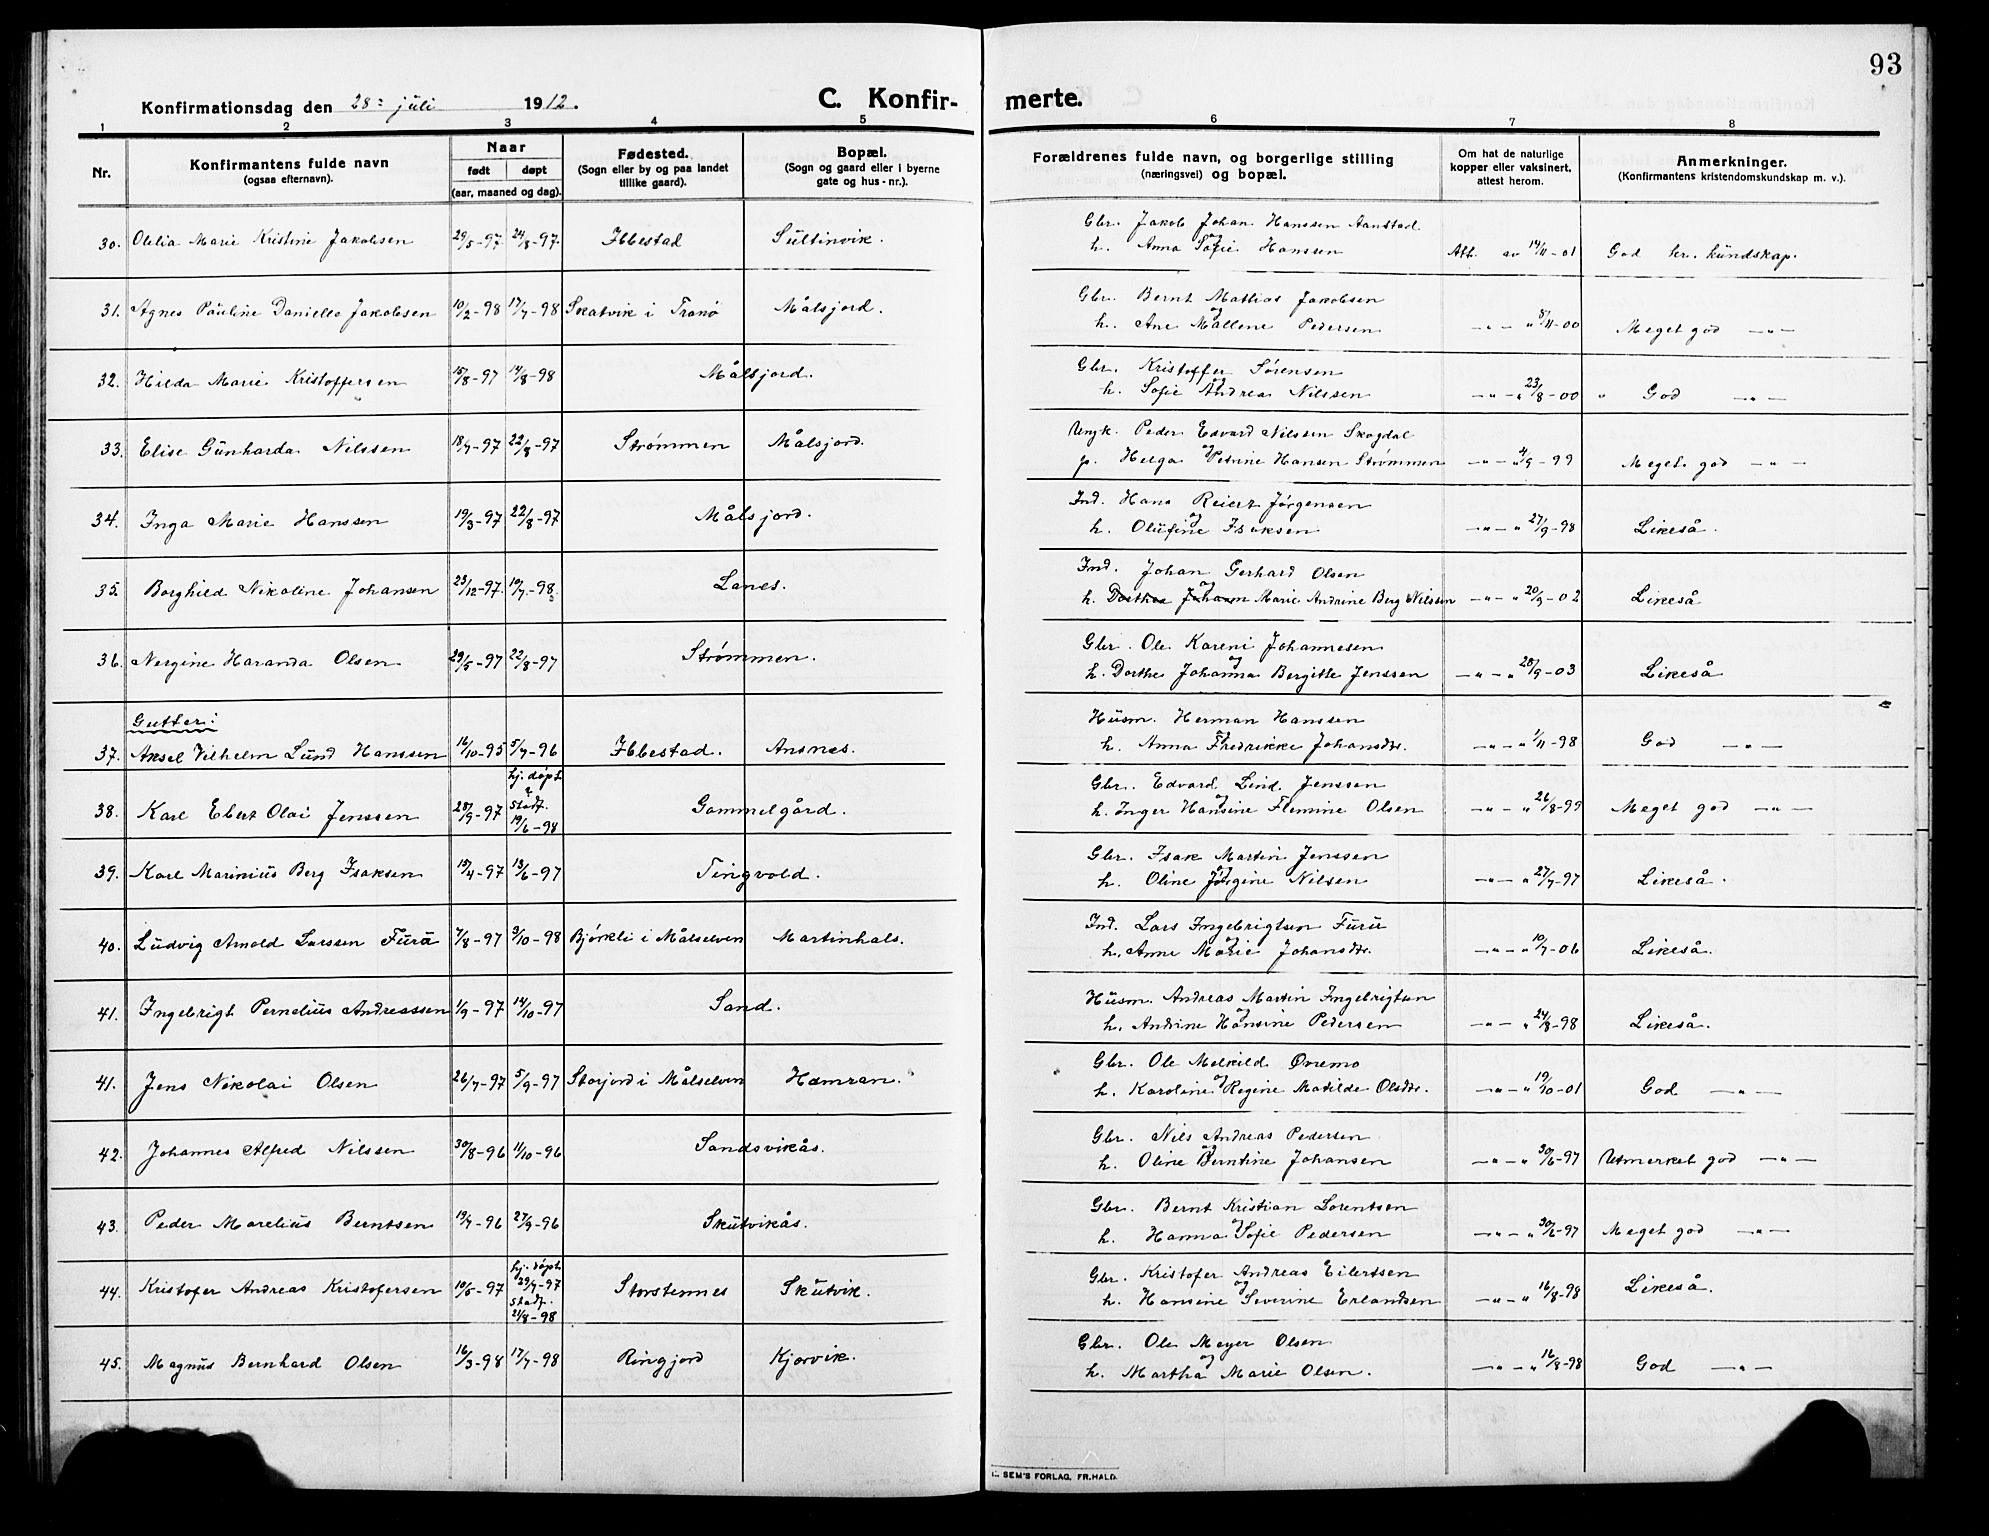 93
Konfirmationsdag den 28 juli 1912.
C. Konfir-
merte.
1 2 3 4 5 6 7 8
Nr. Konfirmantens fulde navn (ogsaa efternavn). Naar født døpt (aar, maaned og dag). Fødested. (Sogn eller by og paa landet tillike gaard). Bopæl. (Sogn og gaard eller i byerne gate og hus-nr.). Forældrenes fulde navn, og borgerlige stilling (næringsvei) og bopæl. Om hat de naturlige kopper eller vaksinert, attest herom. Anmerkninger. (Konfirmantens kristendomskundskap m. v.).
Gbr. Jakob Johan Hanssen Aanstad
og
30. Olelia Marie Kristine Jakobsen 29/5-97 24/8-97. Ibbestad Sultinvik. h. Anna Sofie Hanssen Att. av 14/11-01 God kr. kundskap.
Gbr. Bernt Mathias Jakobsen
og
31. Agnes Pauline Danielle Jakobsen 10/2-98 17/7-98 Skatvik i Tranø Målsjord. h. Ane Mallene Pedersen -"- " 8/11-00 Meget god -"-
Gbr. Kristoffer Sørensen
og
32. Hilda Marie Kristoffersen 15/8-97 14/8-98 Målsjord. h. Sofie Andrea Nilssen -"- " 23/8-00 " God -"-
Ungk. Peder Edvard Nilssen Skogdal
og
33. Elise Gunharda Nilssen 18/7-97 22/8-97 Strømmen Målsjord. p. Helga Petrine Hansen Strømmen -"- " 4/9-99 Meget god -"-
Ind. Hans Reiert Jørgensen
og
34. Inga Marie Hanssen 19/3-97 22/8-97 Målsjord. h. Olufine Isaksen -"- " 27/9-98 Likeså.
Ind. Johan Gerhard Olsen
og
35. Borghild Nikoline Johansen 23/12-97. 10/7-98 Lanes. h. Dorthea Johann Marie Andrine Berg Nilssen -"- " 20/9-02 Likeså
Gbr. Ole Kareni Johannesen
og
36. Nergine Haranda Olsen 29/5-97 22/8-97 Strømmen. h. Dorthe Johanna Bergitte Jenssen -"- " 28/9-03 Likeså
Gutter:
Husm. Herman Hanssen
og
37. Aksel Vilhelm Lund Hanssen 16/10-95 5/7-96 Ibbestad. Ansnes. h. Anna Fredrikke Johansdtr. -"- " 1/11-98 God -"-
hj. døpt
Gbr. Edvard Lind Jenssen
og
38. Karl Ebert Olai Jenssen 28/9-97 stadf. 19/6-98 Gammelgård. h. Inger Hansine Flemine Olsen -"- " 26/8-99 Meget god -"-
Gbr. Isak Martin Jenssen
og
39. Karl Marinius Berg Isaksen 15/4-97 13/6-97 Tingvold. h. Oline Jørgine Nilsen -"- " 27/7-97 Likeså.
Ind. Lars Ingebrigtsen Furu
og
40. Ludvig Arnold Larssen Furu 7/8-97 9/10-98 Bjørkli i Målselven Martinhals. h. Anne Marie Johansdtr. -"- " 10/7-06 Likeså.
Husm. Andreas Martin Ingebrigtsen
og
41. Ingebrigt Pernelius Andreassen 1/9-97 14/10-97 Sand. h. Andrine Hansine Pedersen -"- " 24/8-98 Likeså.
Gbr. Ole Melkild Øvremo
og
41. Jens Nikolai Olsen 26/7-97 5/9-97 Storjord i Målselven Hamran. h. Karoline Regine Matilde Olsdtr. -"- " 19/10-01 God -"-
Gbr. Nils Andreas Pedersen
og
42. Johannes Alfred Nilssen 30/8-96 11/10-96 Sandsvikås. h. Oline Berntine Johansen -"- " 30/6-97 Utmerket god -"-
Gbr. Bernt Kristian Lorentsen
og
43. Peder Marelius Berntsen 19/7-96 27/9-96 Skutvikås. h. Hanna Sofie Pedersen -"- " 30/6-97 Meget god -"-
hj. døpt
Gbr. Kristofer Andreas Eilertsen
og
44. Kristofer Andreas Kristofersen 10/5-97 29/7-97 stadf. 21/8-98 Storstennes Skutvik. h. Hansine Severine Erlandsen -"- " 16/8-98 Likeså.
Gbr. Ole Meyer Olsen
og
45. Magnus Bernhard Olsen 16/3-98 17/7-98 Ringjord Kjorvik. h. Martha Marie Olsen. -"- " 16/8-98 God -"-
SEM'S FORLAG, FR.HALD.